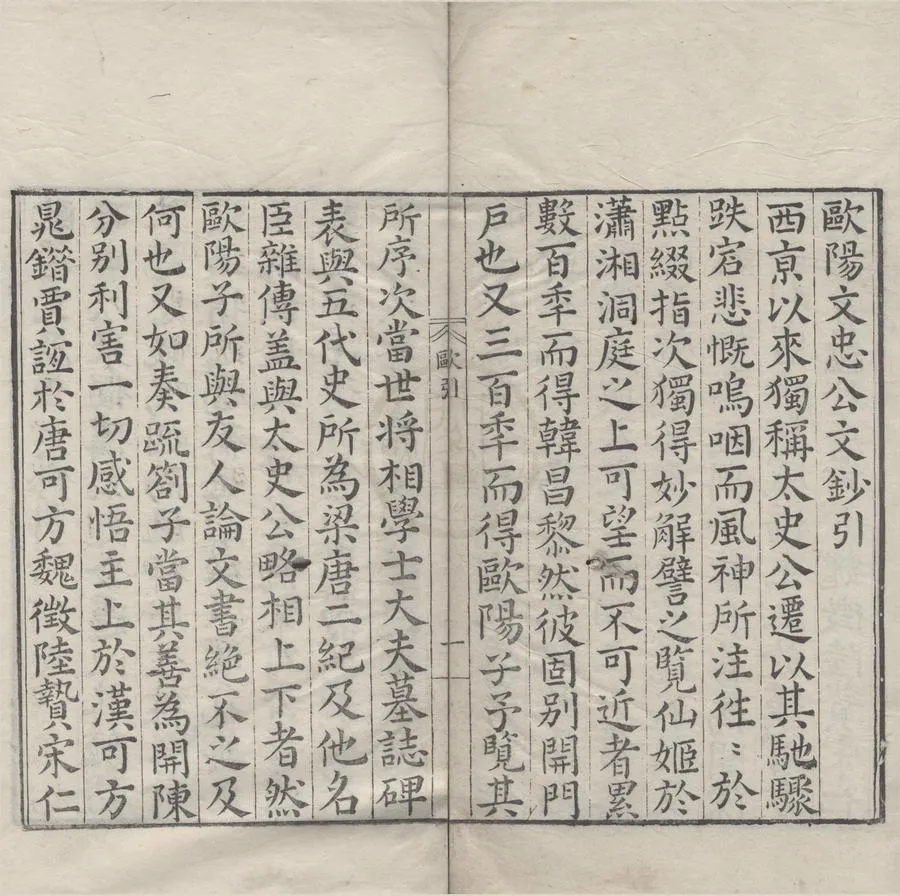 歐陽文忠公文鈔引
西亰以來獨稱太史公遷以其馳驟
跌宕悲慨嗚咽而風神所注徃〻於
點綴指次獨得妙解譬之覽仙姬於
瀟湘洞庭之上可望而不可近者累
數百秊而得韓昌黎然彼固別開門
戶也又三百秊而得歐陽子予覽其
歐引
一
所序次當世将相學士大夫墓誌碑
表與五代史所為梁唐二紀及他名
臣雜傳盖與太史公略相上下者然
歐陽子所與友人論文書絶不之及
何也又如奏疏劄子當其善為開陳
分别利害一切感悟主上於漢可方
晁錯賈誼於唐可方魏徵陸贄宋仁